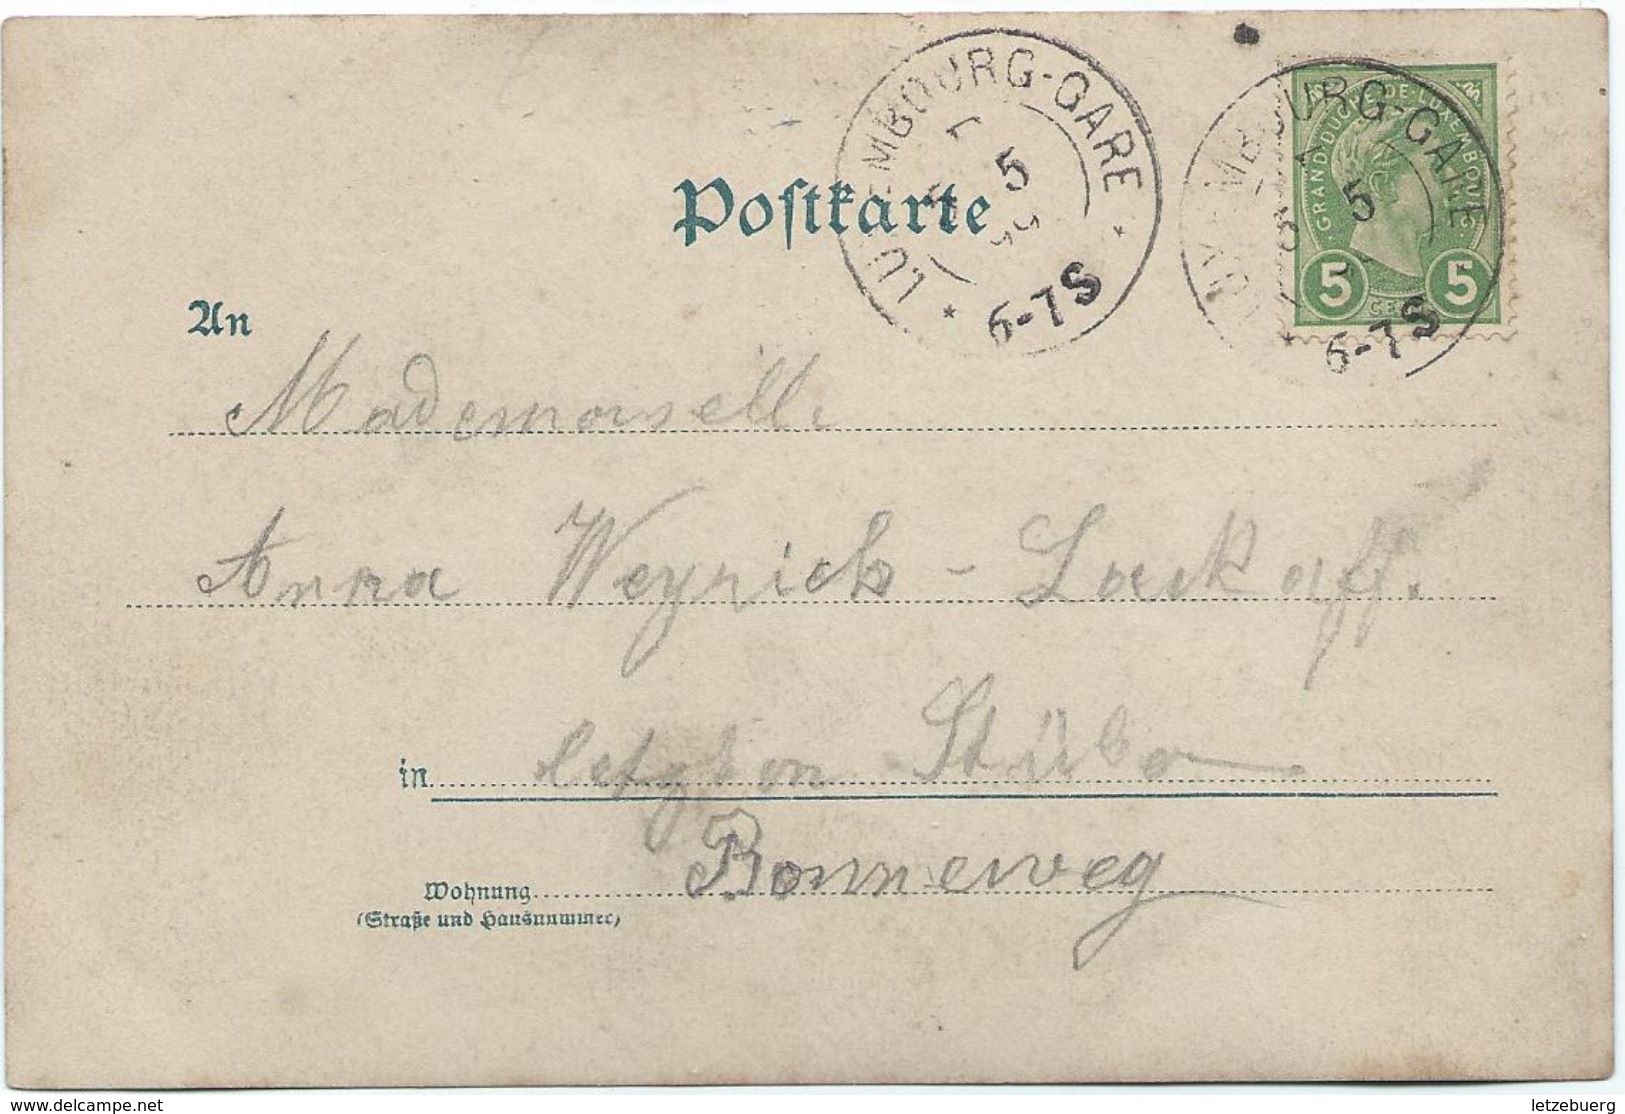 Postkarte
LUXEMBOURG-GARE
5
99
6-7S
LUXEMBOURG-GARE
5
6-7S
GRAND DUCHÉ DE LUXEMBOURG
5 5
An
Mademoiselle
Anna Weyrich - Lockaff.
in letzten Stüber
Bonneweg
Wohnung
(Straße und Hausnummer)
www.delcampe.net
letzebuerg